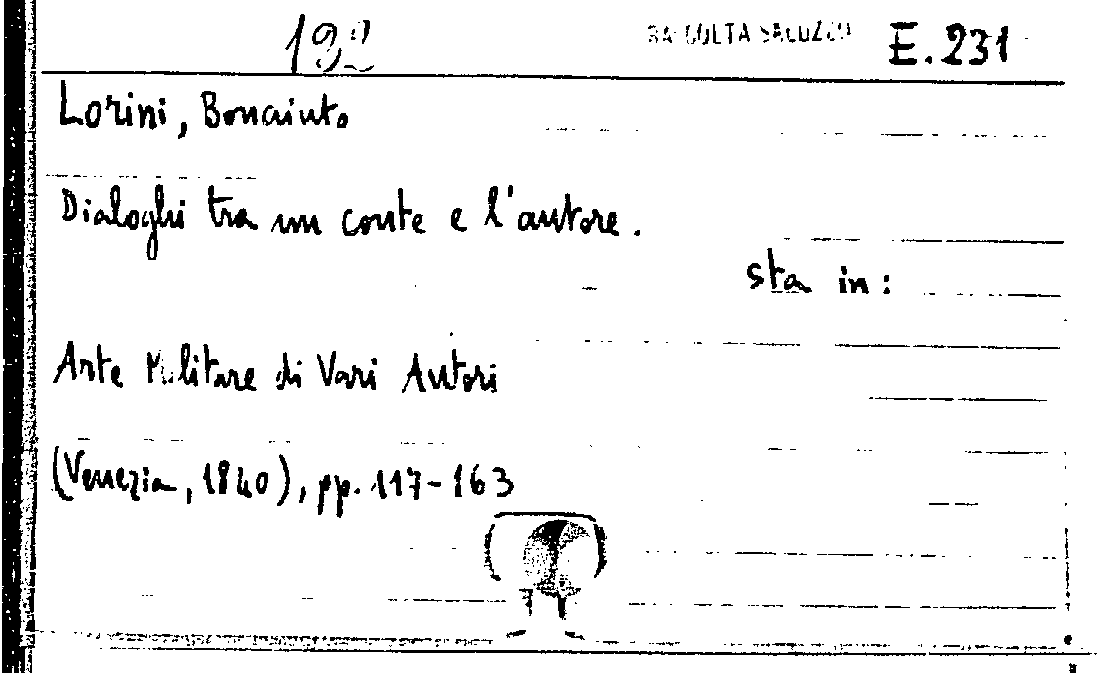 192 RACCOLTA SALUZZO E.231
Lorini, Bonaiuto
Dialoghi tra un conte e l'autore.
sta in:
Arte Militare di Vari Autori
(Venezia, 1840), pp. 117-163